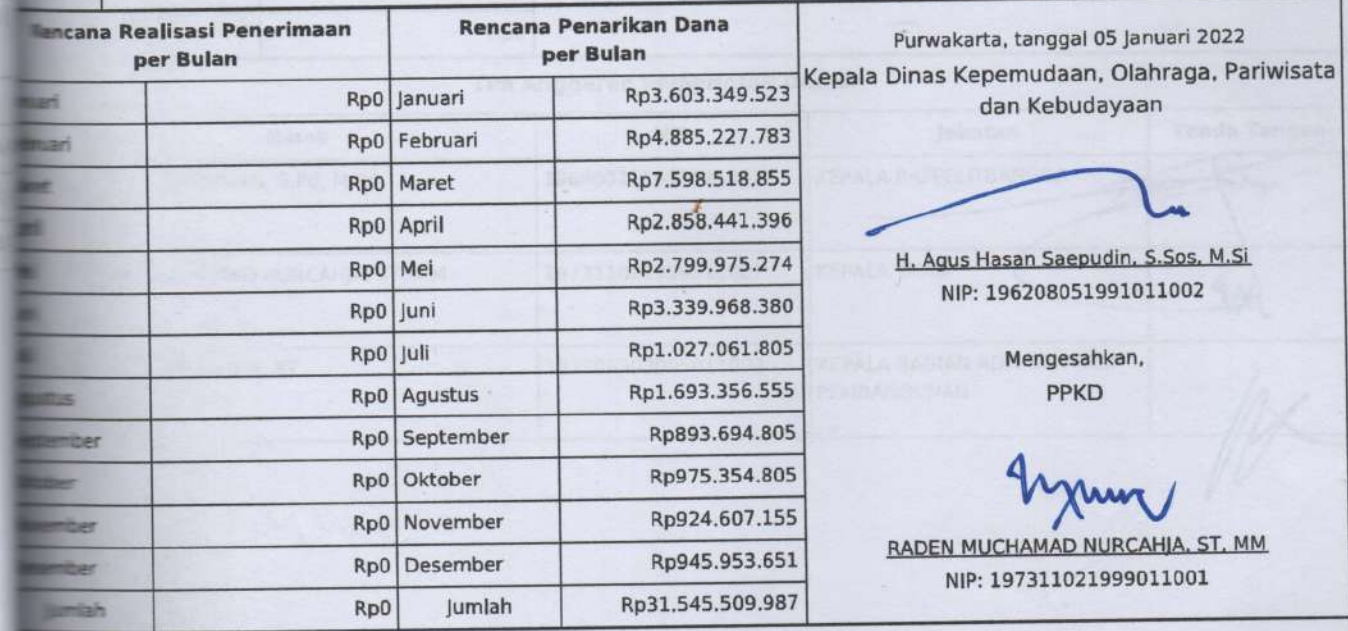 Rencana Realisasi Penerimaan
per Bulan
Rencana Penarikan Dana
per Bulan
Rp0 Januari Rp3.603.349.523
Rp0 Februari Rp4.885.227.783
Rp0 Maret Rp7.598.518.855
Rp0 April Rp2.858.441.396
Rp0 Mei Rp2.799.975.274
Rp0 Juni Rp3.339.968.380
Rp0 Juli Rp1.027.061.805
Agustus Rp0 Agustus Rp1.693.356.555
September Rp0 September Rp893.694.805
Oktober Rp0 Oktober Rp975.354.805
November Rp0 November Rp924.607.155
Desember Rp0 Desember Rp945.953.651
Jumlah Rp0 Jumlah Rp31.545.509.987
Purwakarta, tanggal 05 Januari 2022
Kepala Dinas Kepemudaan, Olahraga, Pariwisata
dan Kebudayaan
H. Agus Hasan Saepudin, S.Sos, M.Si
NIP: 196208051991011002
Mengesahkan,
PPKD
RADEN MUCHAMAD NURCAHJA, ST, MM
NIP: 197311021999011001